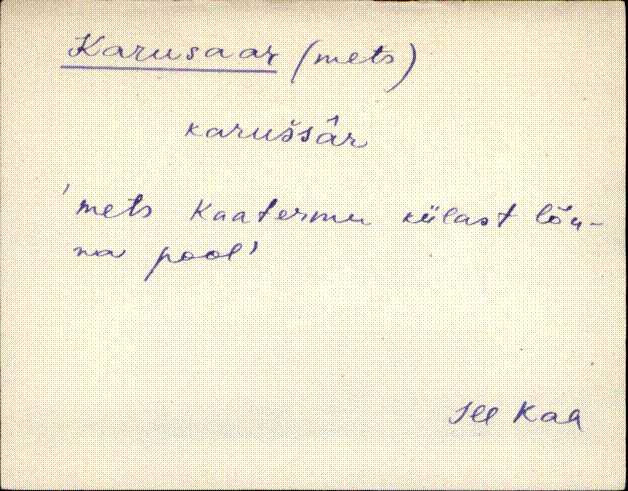 Karusaar (mets)
karušsâr
'mets Kaatermu külast lõu-
na pool'
Ill Kaa